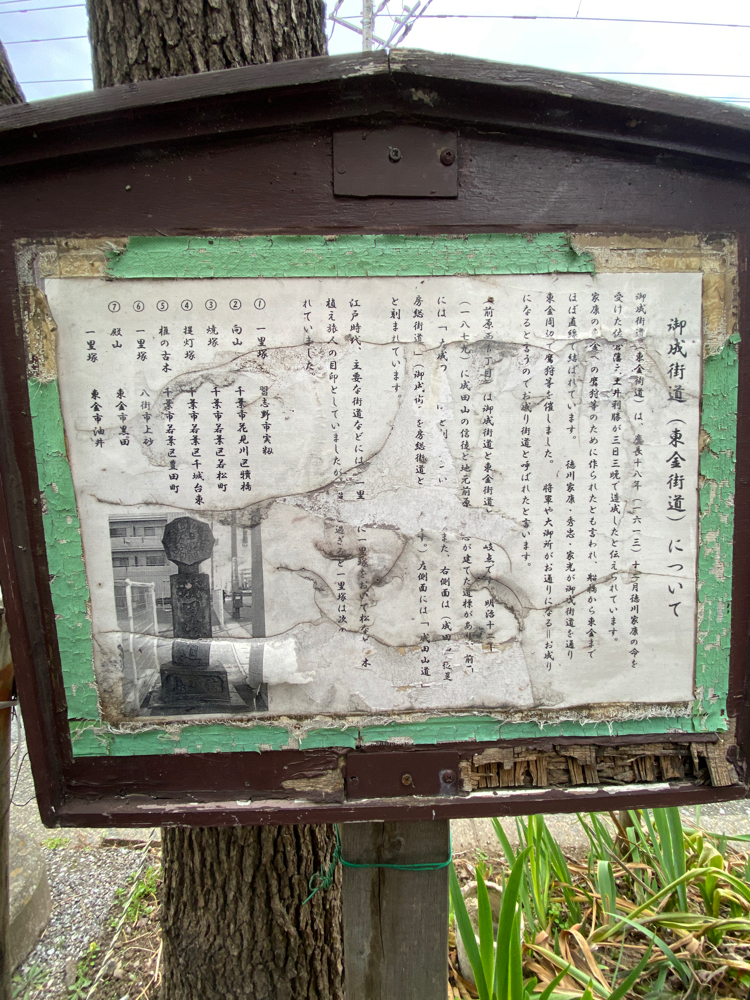 御成街道（東金街道）について
御成街道（東金街道）は、慶長十八年（一六一三）十二月徳川家康の命を
受けた佐倉藩主土井利勝が三日三晩で造成したと伝えられています。
家康の東金への鷹狩等のために作られたとも言われ、船橋から東金まで
ほぼ直線で結ばれています。 徳川家康・秀忠・家光が御成街道を通り
東金周辺で鷹狩等を催しました。 将軍や大御所がお通りになる＝お成り
になるというのでお成り街道と呼ばれたと言います。
前原 丁目）は御成街道と東金街道 岐点で 明治十二年
（一八七九）に成田山の信徒と地元前原 が建てた道標があり 前
には「 成 また、右側面は「成田
房総街道 「御成街 を房総街道と 左側面には「成田山道
と刻まれています
江戸時代、主要な街道などには一里 に一里塚 松な 木
植え旅人の目印としていましたが 過ぎ と一里塚は次
れていました。
① 一里塚 習志野市実籾
② 向山 千葉市花見川区犢橋
③ 焼塚 千葉市若葉区若松町
④ 提灯塚 千葉市若葉区千城台東
⑤ 椎の古木 千葉市若葉区富田町
⑥ 一里塚 八街市上砂
⑦ 殿山 東金市黒田
一里塚 東金市油井